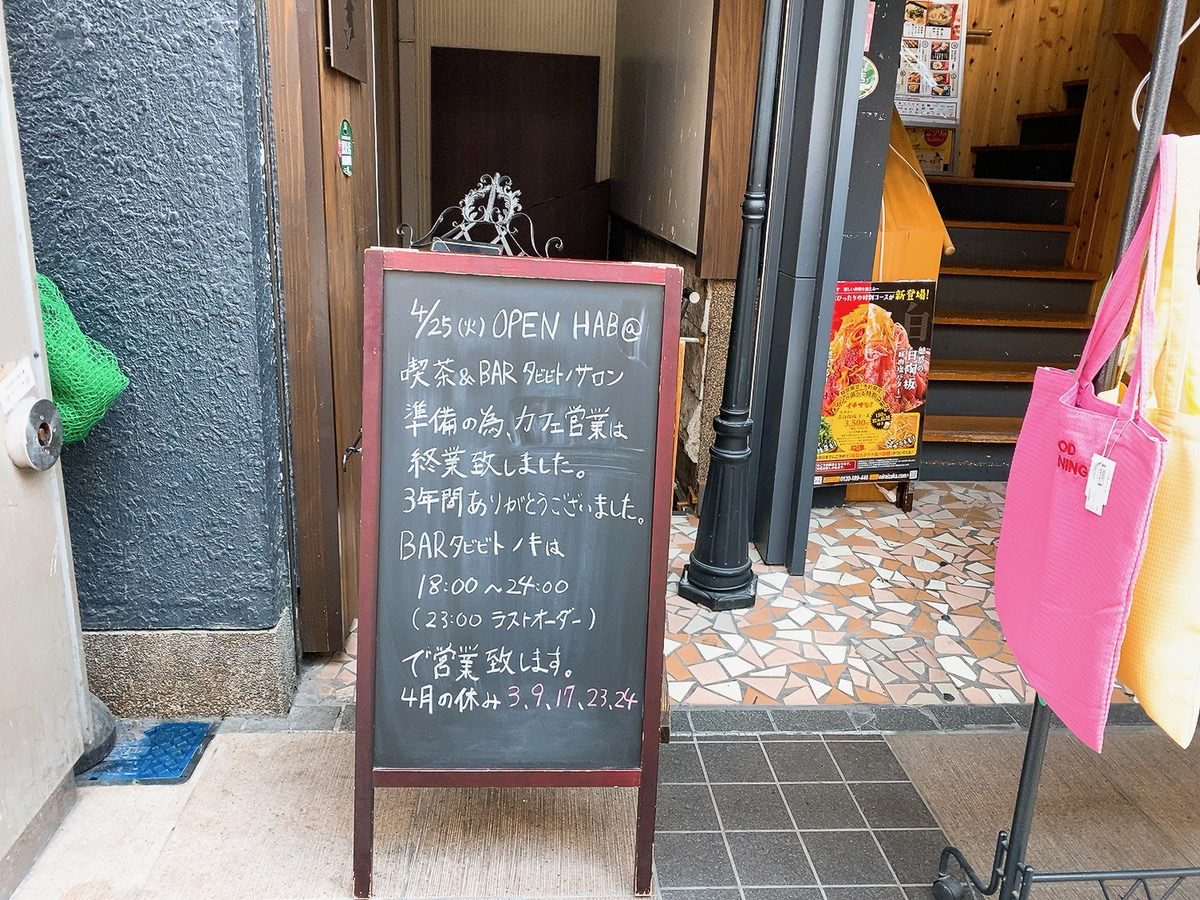 4/25(火) OPEN HAB@
喫茶&BAR タビビトノサロン
準備の為、カフェ営業は
終業致しました。
3年間ありがとうございました。
BARタビビトノキは
18:00～24:00
(23:00 ラストオーダー)
で営業致します。
4月の休み 3、9、17、23、24
ぴったりの特別コースが新登場!
3,500
0120-189-446
OD
NING